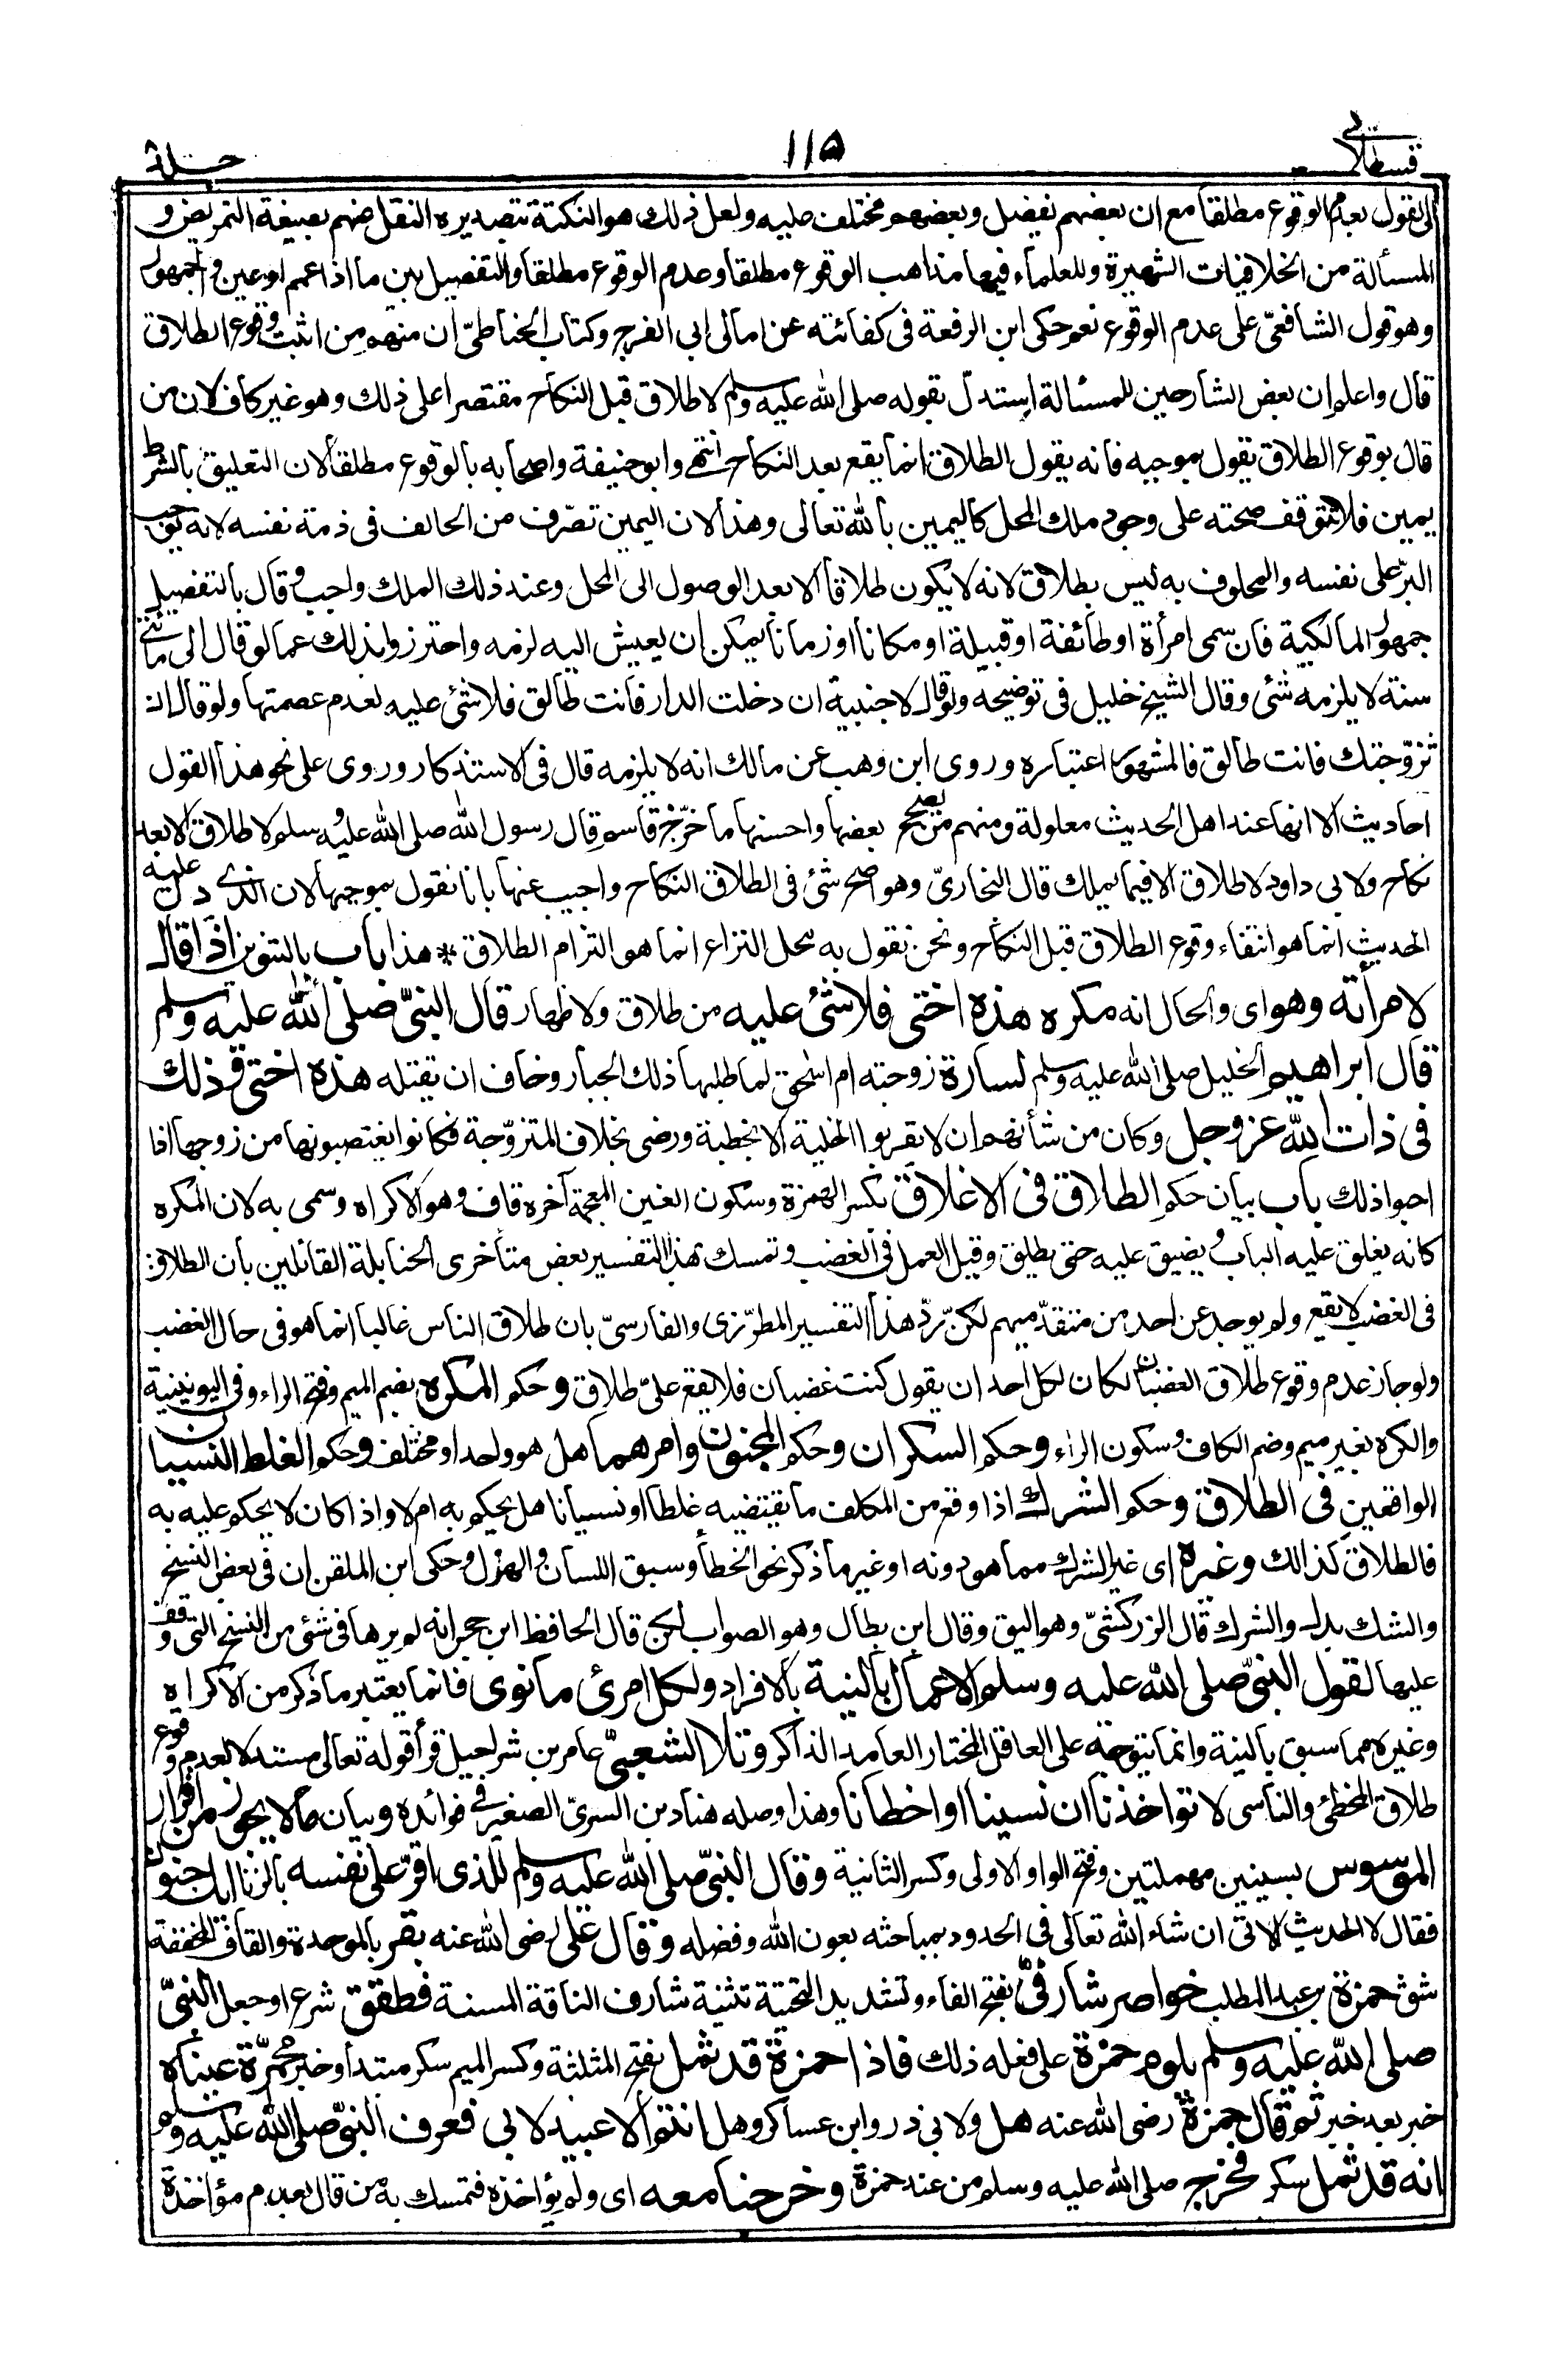 قسطلاني ١١٥
الى القول بعدم الوقوع مطلقا مع ان بعضهم يفصل وبعضهم مختلف عليه ولعل ذلك هو النكتة بتصديره النقل عنهم بصيغة التمريض و
المسألة من الخلافيات الشهيرة وللعلماء فيها مذاهب الوقوع مطلقا وعدم الوقوع مطلقا والتفصيل بين ما اذا عمم او عين والجمهور
وهو قول الشافعيّ على عدم الوقوع نعم حكى ابن الرفعة فى كفائته عن امالى ابى الفرج وكتاب الحناطيّ ان منهم من اثبت وقوع الطلاق
قال واعلم ان بعض الشارحين للمسئالة استدل بقوله صلى الله عليه وسلم لا طلاق قبل النكاح مقتصرا على ذلك وهو غير كاف لان من
قال بوقوع الطلاق يقول بموجبه فانه يقول الطلاق انما يقع بعد النكاح انتهى وابو حنيفة واصحابه بالوقوع مطلقا لان التعليق بالشرط
يمين فلا تتوقف صحته على وجود ملك المحل كاليمين بالله تعالى وهذا لان اليمين تصرّف من الحالف فى ذمة نفسه لانه يوجب
البرّ على نفسه والمحلوف به ليس بطلاق لانه لا يكون طلاقا الا بعد الوصول الى المحل وعند ذلك الملك واجب وقال بالتفصيل
جمهور المالكية فان سمى امرأة او طائفة او قبيلة او مكانا او زمانا يمكن ان يعيش اليه لزمه واحترزوا بذلك عما لو قال الى مائتى
سنة لا يلزمه شئ وقال الشيخ خليل فى توضيحه ولو قال لاجنبية ان دخلت الدار فانت طالق فلا شئ عليه لعدم عصمتها ولو قال ان
تزوّجتك فانت طالق فالمشهور اعتباره وروى ابن وهب عن مالك انه لا يلزمه قال فى الاستذكار وروى على نحو هذا القول
احاديث الا انها عند اهل الحديث معلولة ومنهم من يصحح بعضها واحسنها ما خرّجه قاسم قال رسول الله صلى الله عليه وسلم لا طلاق الا بعد
نكاح ولابى داود لا طلاق الا فيما يملك قال البخاريّ وهو اصح شئ فى الطلاق النكاح واجيب عنها بانا نقول بموجبها لان الذى دل عليه
الحديث انما هو انتفاء وقوع الطلاق قبل النكاح ونحن نقول به محل النزاع انما هو التزام الطلاق * هذا باب بالتنوين اذا قال
لامرأته وهو اى والحال انه مكره هذه اختى فلا شئ عليه من طلاق ولا ظهار قال النبىّ صلى الله عليه وسلم
قال ابراهيم الخليل صلى الله عليه وسلم لسارة زوجته ام اسحق لما طلبها ذلك الجبار وخاف ان يقتله هذه اختى وذلك
فى ذات الله عز وجل وكان من شأنهم ان لا يقربوا الخلية الا بخطبة ورضى بخلاف المتزوّجة فكانوا يغتصبونها من زوجها اذا
احبوا ذلك باب بيان حكم الطلاق فى الاغلاق بكسر الهمزة وسكون الغين المعجمة آخره قاف وهو الاكراه وسمى به لان المكره
كانه يغلق عليه الباب ويضيق عليه حتى يطلق وقيل العمل فى الغضب وتمسك بهذا التفسير بعض متأخرى الحنابلة القائلين بان الطلاق
فى الغضب لا يقع ولم يوجد عن احد من متقدّميهم لكن ردّ هذا التفسير المطرّزى والفارسىّ بان طلاق الناس غالبا انما هو فى حال الغضب
ولو جاز عدم وقوع طلاق الغضبان لكان لكل احد ان يقول كنت غضبان فلا يقع علىّ طلاق وحكم المكره بضم الميم وفتح الراء وفى اليونينية
والكره بغير ميم وضم الكاف وسكون الراء وحكم السكران وحكم المجنون وامرهما هل هو واحد او مختلف وحكم الغلط النسيان
الواقعين فى الطلاق وحكم الشرك اذا وقع من المكلف ما يقتضيه غلطا او نسيانا هل يحكم به ام لا واذا كان لا يحكم عليه به
فالطلاق كذالك وغيره اى غير الشرك مما هو دونه او غير ما ذكر نحو الخطأ وسبق اللسان والهزل وحكى ابن الملقن ان فى بعض النسخ
والشك بدل والشرك قال الزركشىّ وهو اليق وقال ابن بطال وهو الصواب لكن قال الحافظ ابن حجر انه لم يرها فى شئ من النسخ التى وقف
عليها لقول النبىّ صلى الله عليه وسلم الاعمال بالنية بالافراد ولكل امرئ ما نوى فانما يعتبر ما ذكر من الاكراه
وغيره مما سبق بالنية وانما يتوجه على العاقل المختار العامد الذاكر وتلا الشعبىّ عامر بن شراحيل قرأ قوله تعالى مستدلا لعدم وقوع
طلاق المخطئ والناسى لا تؤاخذنا ان نسينا او اخطأنا وهذا وصله هناد بن السرىّ الصغير فى فوائده وبيان ما لا يجوز من اقرار
الموسوس بسينين مهملتين وفتح الواو الاولى وكسر الثانية وقال النبىّ صلى الله عليه وسلم للذى اقرّ على نفسه بالزنا ابك جنون
فقال لا الحديث الاتى ان شاء الله تعالى فى الحدود بمباحثه بعون الله وفضله وقال على رضى الله عنه بقر بالموحدة والقاف المخففة
شق حمزة بن عبد المطلب خواصر شارفىّ بفتح الفاء وتشديد التحتية تثنية شارف الناقة المسنة فطفق شرع او جعل النبىّ
صلى الله عليه وسلم يلوم حمزة على فعله ذلك فاذا حمزة قد ثمل بفتح المثلثة وكسر الميم سكر مبتدأ وخبر محمرّة عيناه
خبر بعد خبر ثم قال حمزة رضى الله عنه هل ولابى ذر وابن عساكر وهل انتم الا عبيد لابى فعرف النبىّ صلى الله عليه وسلم
انه قد ثمل سكر فخرج صلى الله عليه وسلم من عند حمزة وخرجنا معه اى ولم يؤاخذه فتمسك به من قال بعدم مؤاخذة